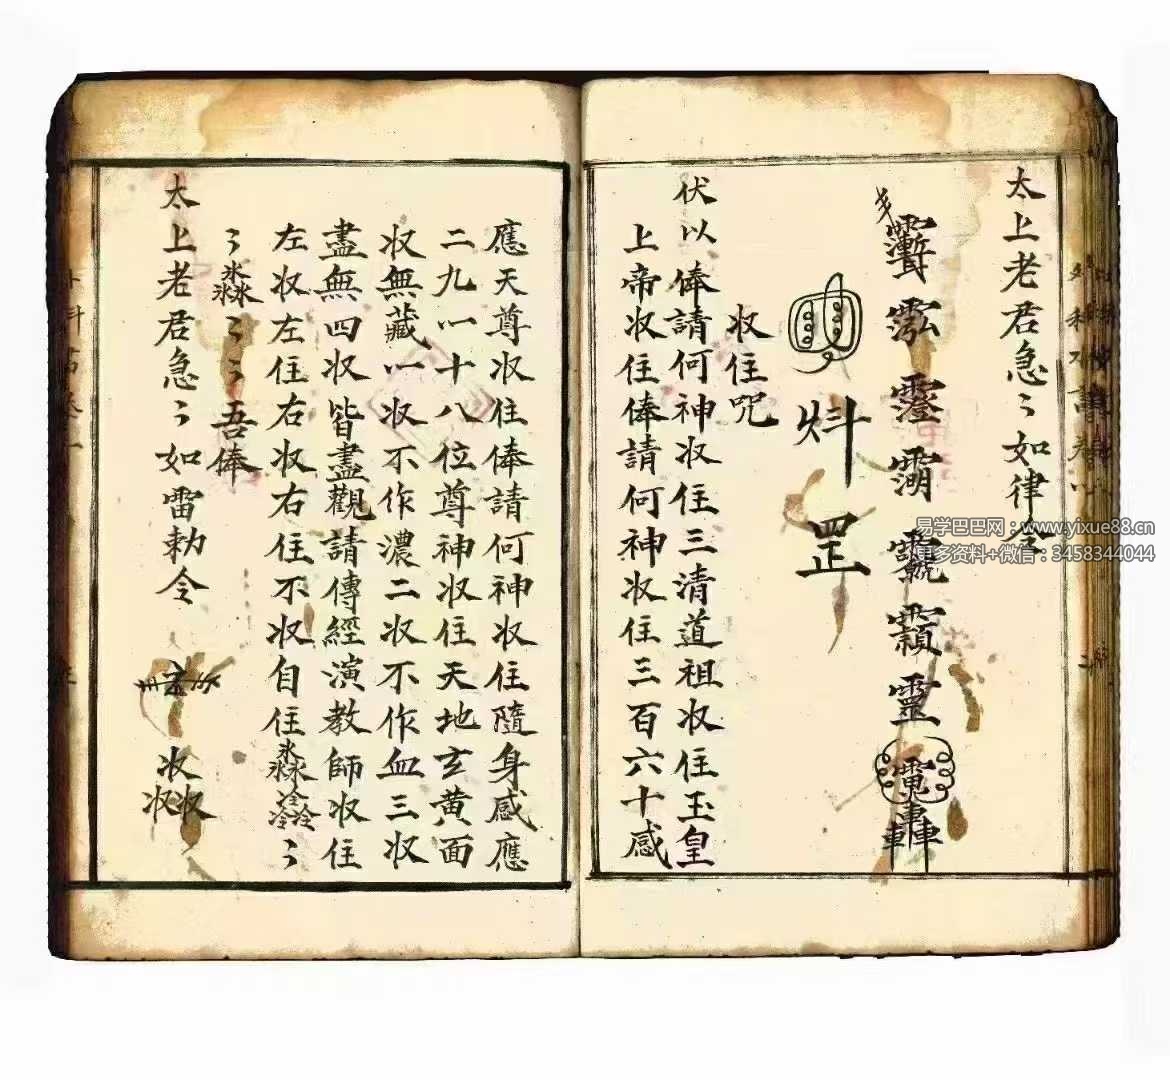 太上老君急〻如律令
炓罡
収住咒
伏以俸請何神収住三清道祖収住玉皇
上帝収住俸請何神収住三百六十感
應天尊収住俸請何神収住隨身感應
二九一十八位尊神収住天地玄黄面
収無藏一収不作濃二収不作血三収
盡無四収皆盡觀請傳經演教師収住
左収左住右収右住不収自住
吾俸
太上老君急〻如雷勅令
易学巴巴网：www.yixue88.cn
更多资料+微信：3458344044